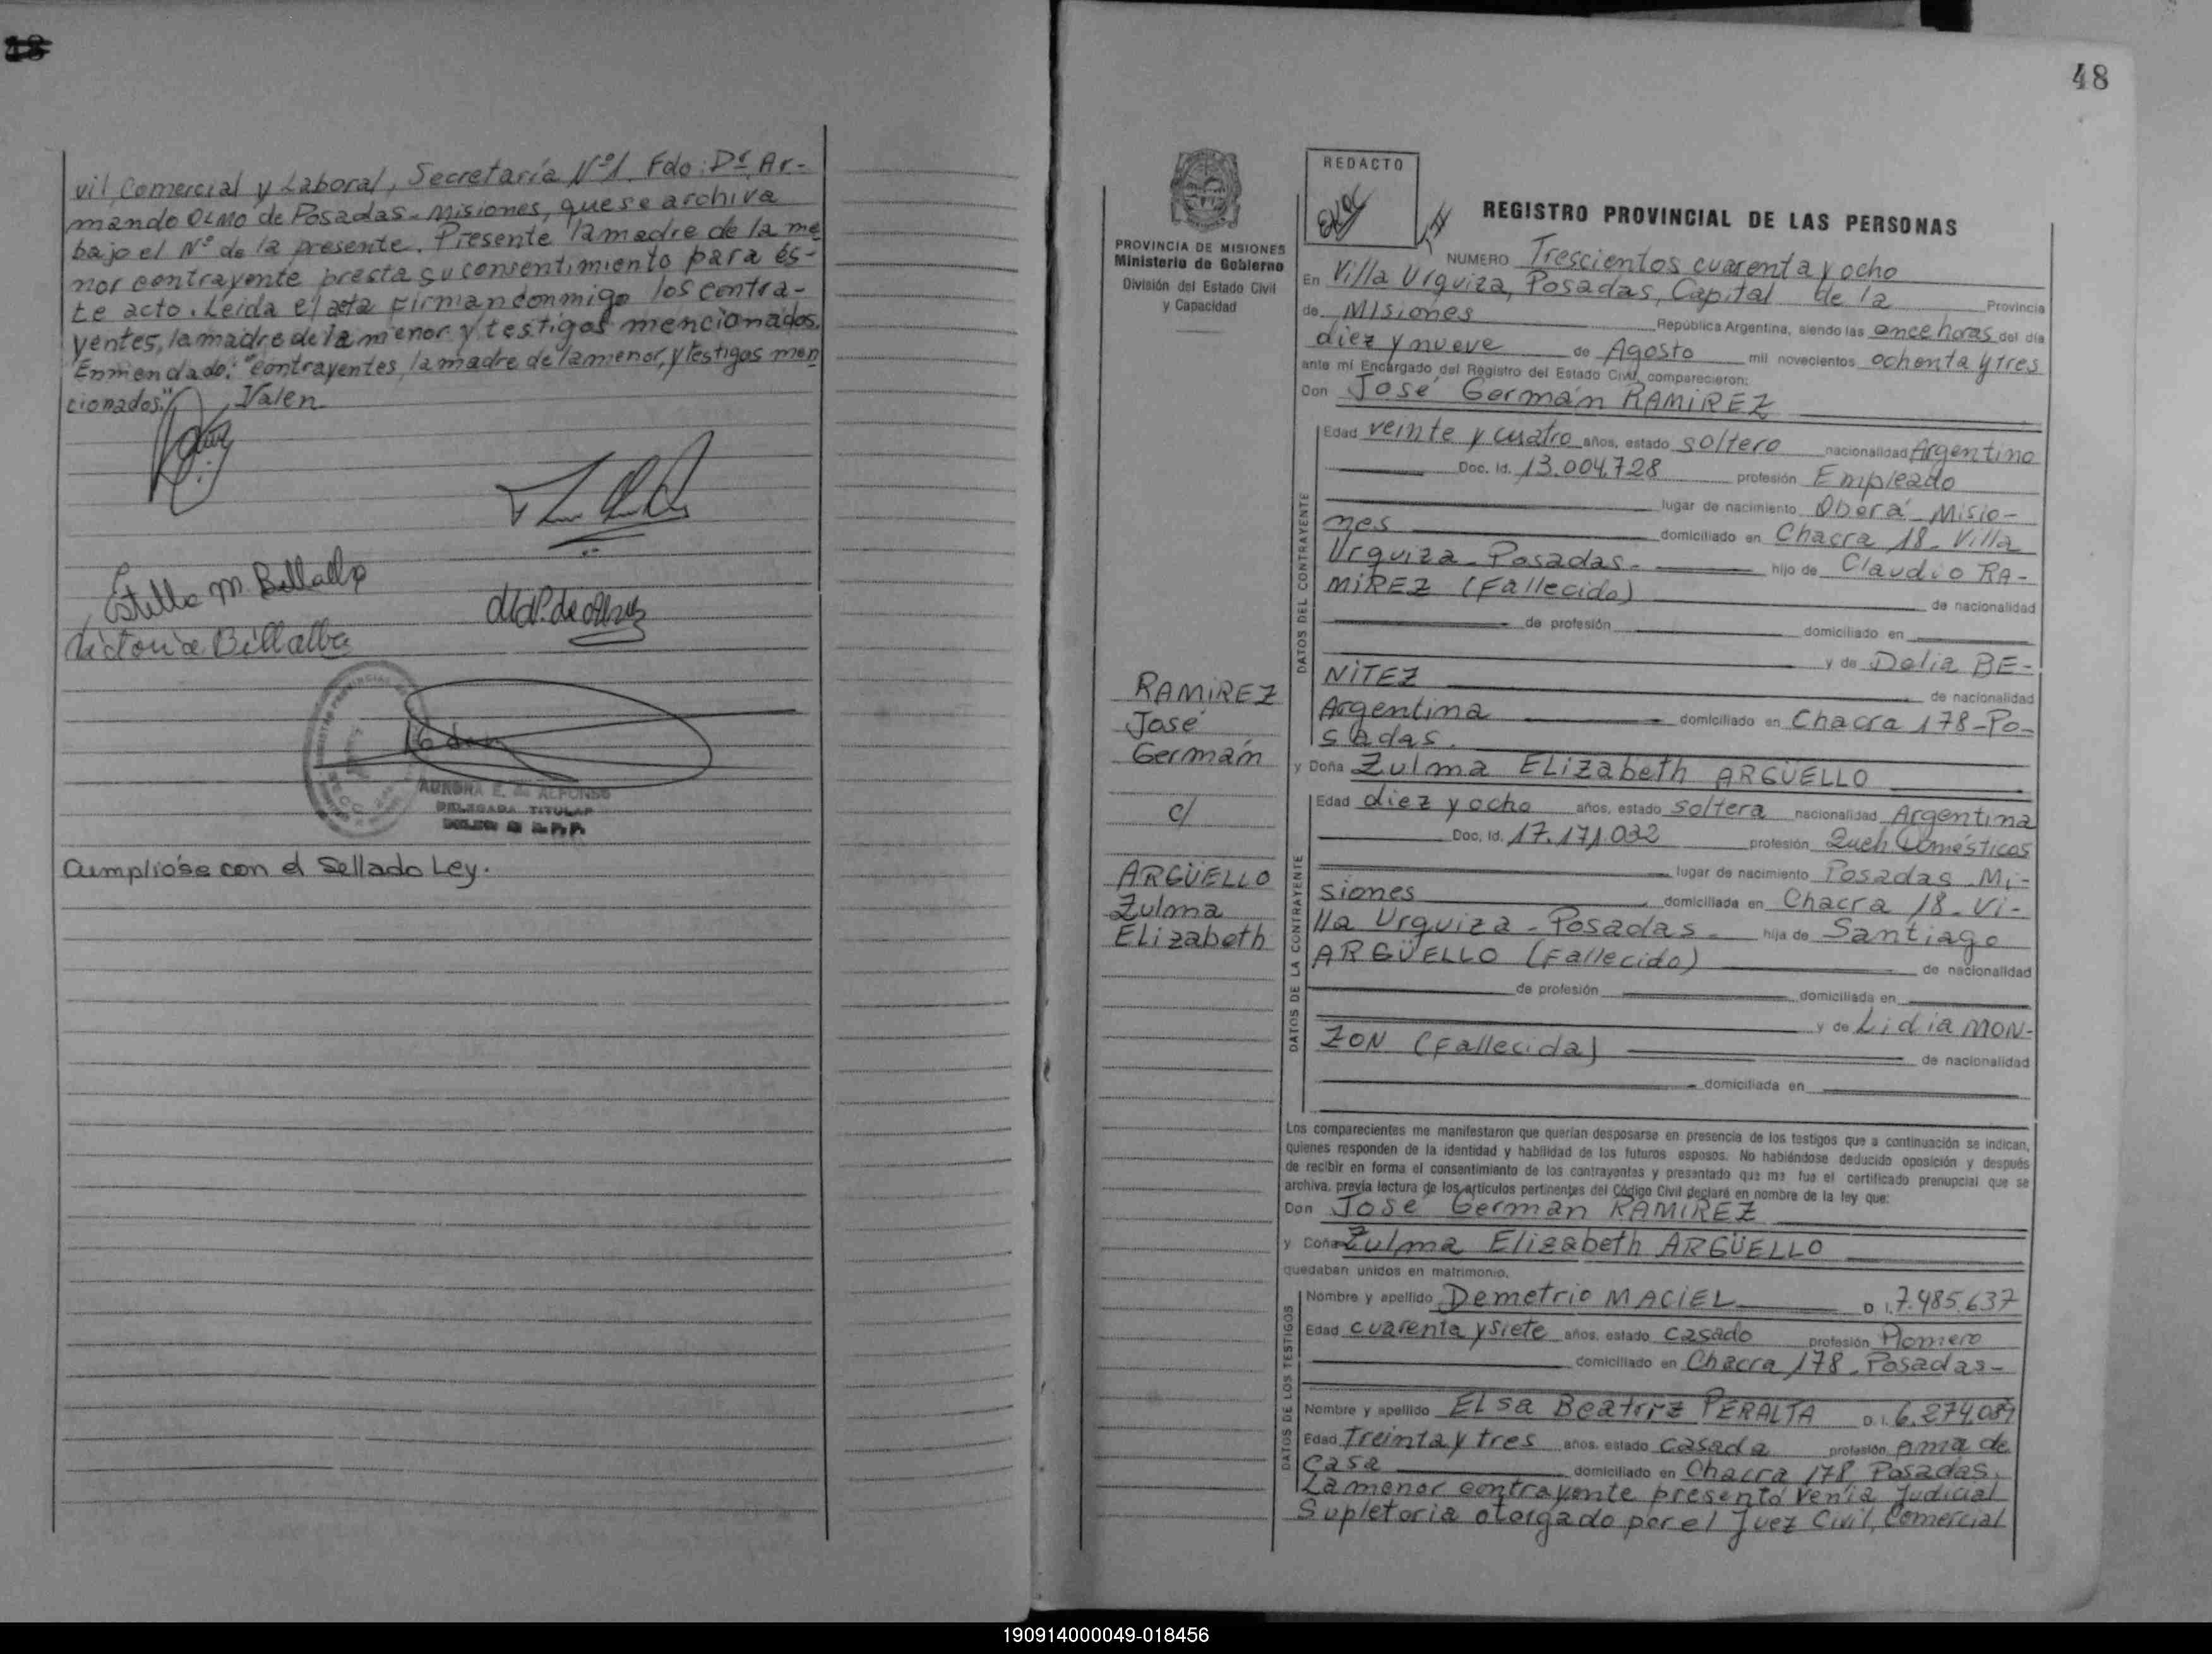 vil, Comercial y Laboral, Secretaría Nº1. Fdo: Dr. Ar-
mando OLMO de Posadas - Misiones, que se archiva
bajo el Nº de la presente. Presente la madre de la me
nor contrayente presta su consentimiento para és-
te acto. Leída el acta firman conmigo los contra-
yentes, la madre de la menor y testigos mencionados.
Enmendado: "contrayentes, la madre de la menor, y testigos men
cionados." Valen
Estella M. Billalba
Victoria Billalba
AURORA E. de ALFONSO
DELEGADA TITULAR
Cumplióse con el Sellado Ley.
48
REDACTO
PROVINCIA DE MISIONES
Ministerio de Gobierno
División del Estado Civil
y Capacidad
REGISTRO PROVINCIAL DE LAS PERSONAS
NUMERO Trescientos cuarenta y ocho
En Villa Urquiza, Posadas, Capital de la Provincia
de Misiones República Argentina, siendo las once horas del día
diez y nueve de Agosto mil novecientos ochenta y tres
ante mí Encargado del Registro del Estado Civil, comparecieron:
Don José Germán RAMIREZ
DATOS DEL CONTRAYENTE
Edad veinte y cuatro años, estado soltero nacionalidad Argentino
Doc. Id. 13.004.728 profesión Empleado
lugar de nacimiento Oberá - Misio-
nes domiciliado en Chacra 18 - Villa
Urquiza - Posadas - hijo de Claudio RA-
MIREZ (Fallecido) de nacionalidad
de profesión domiciliado en
y de Delia BE-
NITEZ de nacionalidad
Argentina domiciliado en Chacra 178 - Po-
sadas.
RAMIREZ
José
Germán
c/
ARGÜELLO
Zulma
Elizabeth
y Doña Zulma Elizabeth ARGÜELLO
DATOS DE LA CONTRAYENTE
Edad diez y ocho años, estado soltera nacionalidad Argentina
Doc. Id. 17.171.032 profesión Queh. Domésticos
lugar de nacimiento Posadas - Mi-
siones domiciliada en Chacra 18 - Vi-
lla Urquiza - Posadas - hija de Santiago
ARGÜELLO (Fallecido) de nacionalidad
de profesión domiciliada en
y de Lidia MON-
ZON (Fallecida) de nacionalidad
domiciliada en
Los comparecientes me manifestaron que querían desposarse en presencia de los testigos que a continuación se indican,
quienes responden de la identidad y habilidad de los futuros esposos. No habiéndose deducido oposición y después
de recibir en forma el consentimiento de los contrayentes y presentado que me fue el certificado prenupcial que se
archiva, previa lectura de los artículos pertinentes del Código Civil declaré en nombre de la ley que:
Don José Germán RAMIREZ
y Doña Zulma Elizabeth ARGÜELLO
quedaban unidos en matrimonio.
DATOS DE LOS TESTIGOS
Nombre y apellido Demetrio MACIEL D. I. 7.485.637
Edad cuarenta y siete años, estado casado profesión Plomero
domiciliado en Chacra 178 - Posadas -
Nombre y apellido Elsa Beatriz PERALTA D. I. 6.274.089
Edad Treinta y tres años, estado casada profesión ama de
casa domiciliado en Chacra 178 Posadas.
La menor contrayente presentó Venia Judicial
Supletoria otorgado por el Juez Civil, Comercial
190914000049-018456